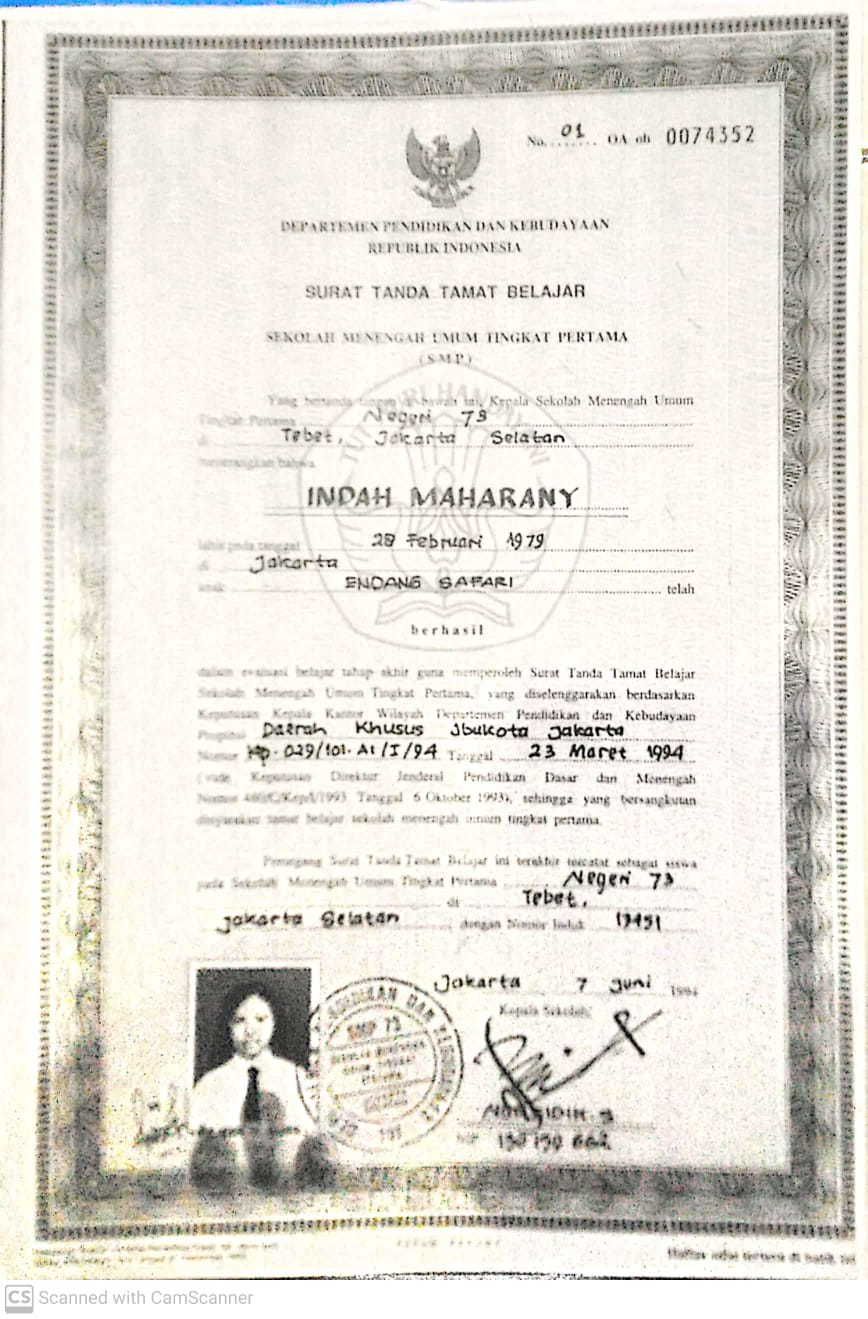 No. 01 OA oh 0074352
DEPARTEMEN PENDIDIKAN DAN KEBUDAYAAN
REPUBLIK INDONESIA
SURAT TANDA TAMAT BELAJAR
SEKOLAH MENENGAH UMUM TINGKAT PERTAMA
(SMP)
Yang bertanda tangan di bawah ini, Kepala Sekolah Menengah Umum
Tingkat Pertama Negeri 73
di Tebet, Jakarta Selatan
menerangkan bahwa
INDAH MAHARANY
lahir pada tanggal 28 Februari 1979
di Jakarta
anak ENDANG SAFARI telah
berhasil
dalam evaluasi belajar tahap akhir guna memperoleh Surat Tanda Tamat Belajar
Sekolah Menengah Umum Tingkat Pertama, yang diselenggarakan berdasarkan
Keputusan Kepala Kantor Wilayah Departemen Pendidikan dan Kebudayaan
Propinsi Daerah Khusus Ibukota Jakarta
Nomor Kp. 029/101. A1/I/94 Tanggal 23 Maret 1994
(vide Keputusan Direktur Jenderal Pendidikan Dasar dan Menengah
Nomor 1993 Tanggal 6 Oktober 1993), sehingga yang bersangkutan
dinyatakan tamat belajar sekolah menengah umum tingkat pertama.
Pemegang Surat Tanda Tamat Belajar ini terakhir tercatat sebagai siswa
pada Sekolah Menengah Umum Tingkat Pertama Negeri 73
di Tebet,
Jakarta Selatan dengan Nomor Induk 13451
Jakarta 7 Juni 1994
Kepala Sekolah,
SMP 73
NIP 130 190 662
CS Scanned with CamScanner